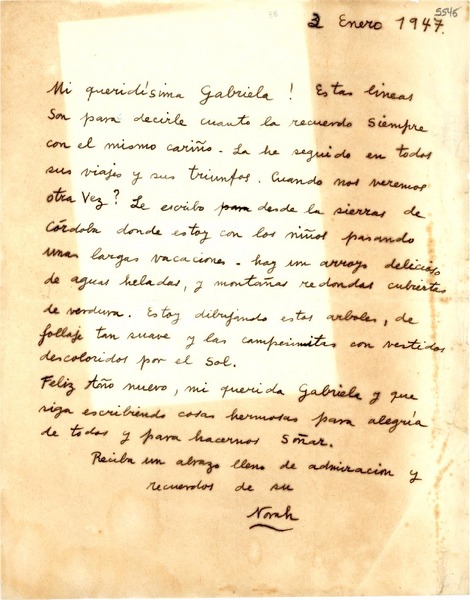 5545
3 Enero 1947.
Mi queridísima Gabriela! Estas lineas
son para decirle cuanto la recuerdo siempre
con el mismo cariño. La he seguido en todos
sus viajes y sus triunfos. Cuando nos veremos
otra vez? Le escribo para desde la sierras de
Córdoba donde estoy con los niños pasando
unas largas vacaciones. hay un arroyo delicioso
de aguas heladas, y montañas redondas cubiertas
de verdura. Estoy dibujando estos arboles, de
follaje tan suave y las campesinitas con vestidos
descoloridos por el sol.
Feliz Año nuevo, mi querida Gabriela y que
siga escribiendo cosas hermosas para alegría
de todos y para hacernos soñar.
Reciba un abrazo lleno de admiración y
recuerdos de su
Norah